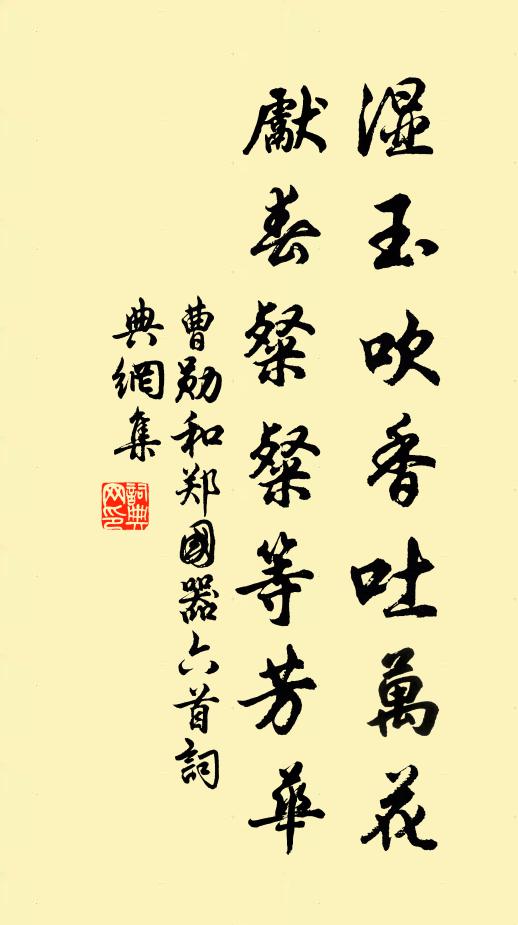 湿玉吹香吐萬花
獻春粲粲等芳華
曹勛和郑國器六首詞
典網集
詞典
网印